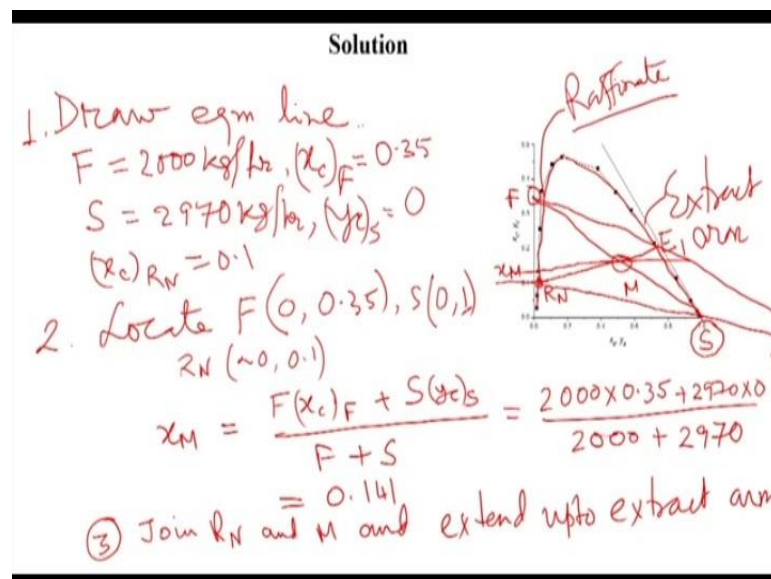 Solution
1. Draw eqm line.
F = 2000 kg/hr, (x_c)_F = 0.35
S = 2970 kg/hr, (y_c)_S = 0
(x_c)_RN = 0.1
2. Locate F(0, 0.35), S(0,1)
R_N (~0, 0.1)
x_M = F(x_c)_F + S(y_c)_S / F + S = 2000 × 0.35 + 2970 × 0 / 2000 + 2970
= 0.141
③ Join R_N and M and extend upto extract arm
Raffinate
Extract
arm
F
E_1
x_M
R_N
M
S